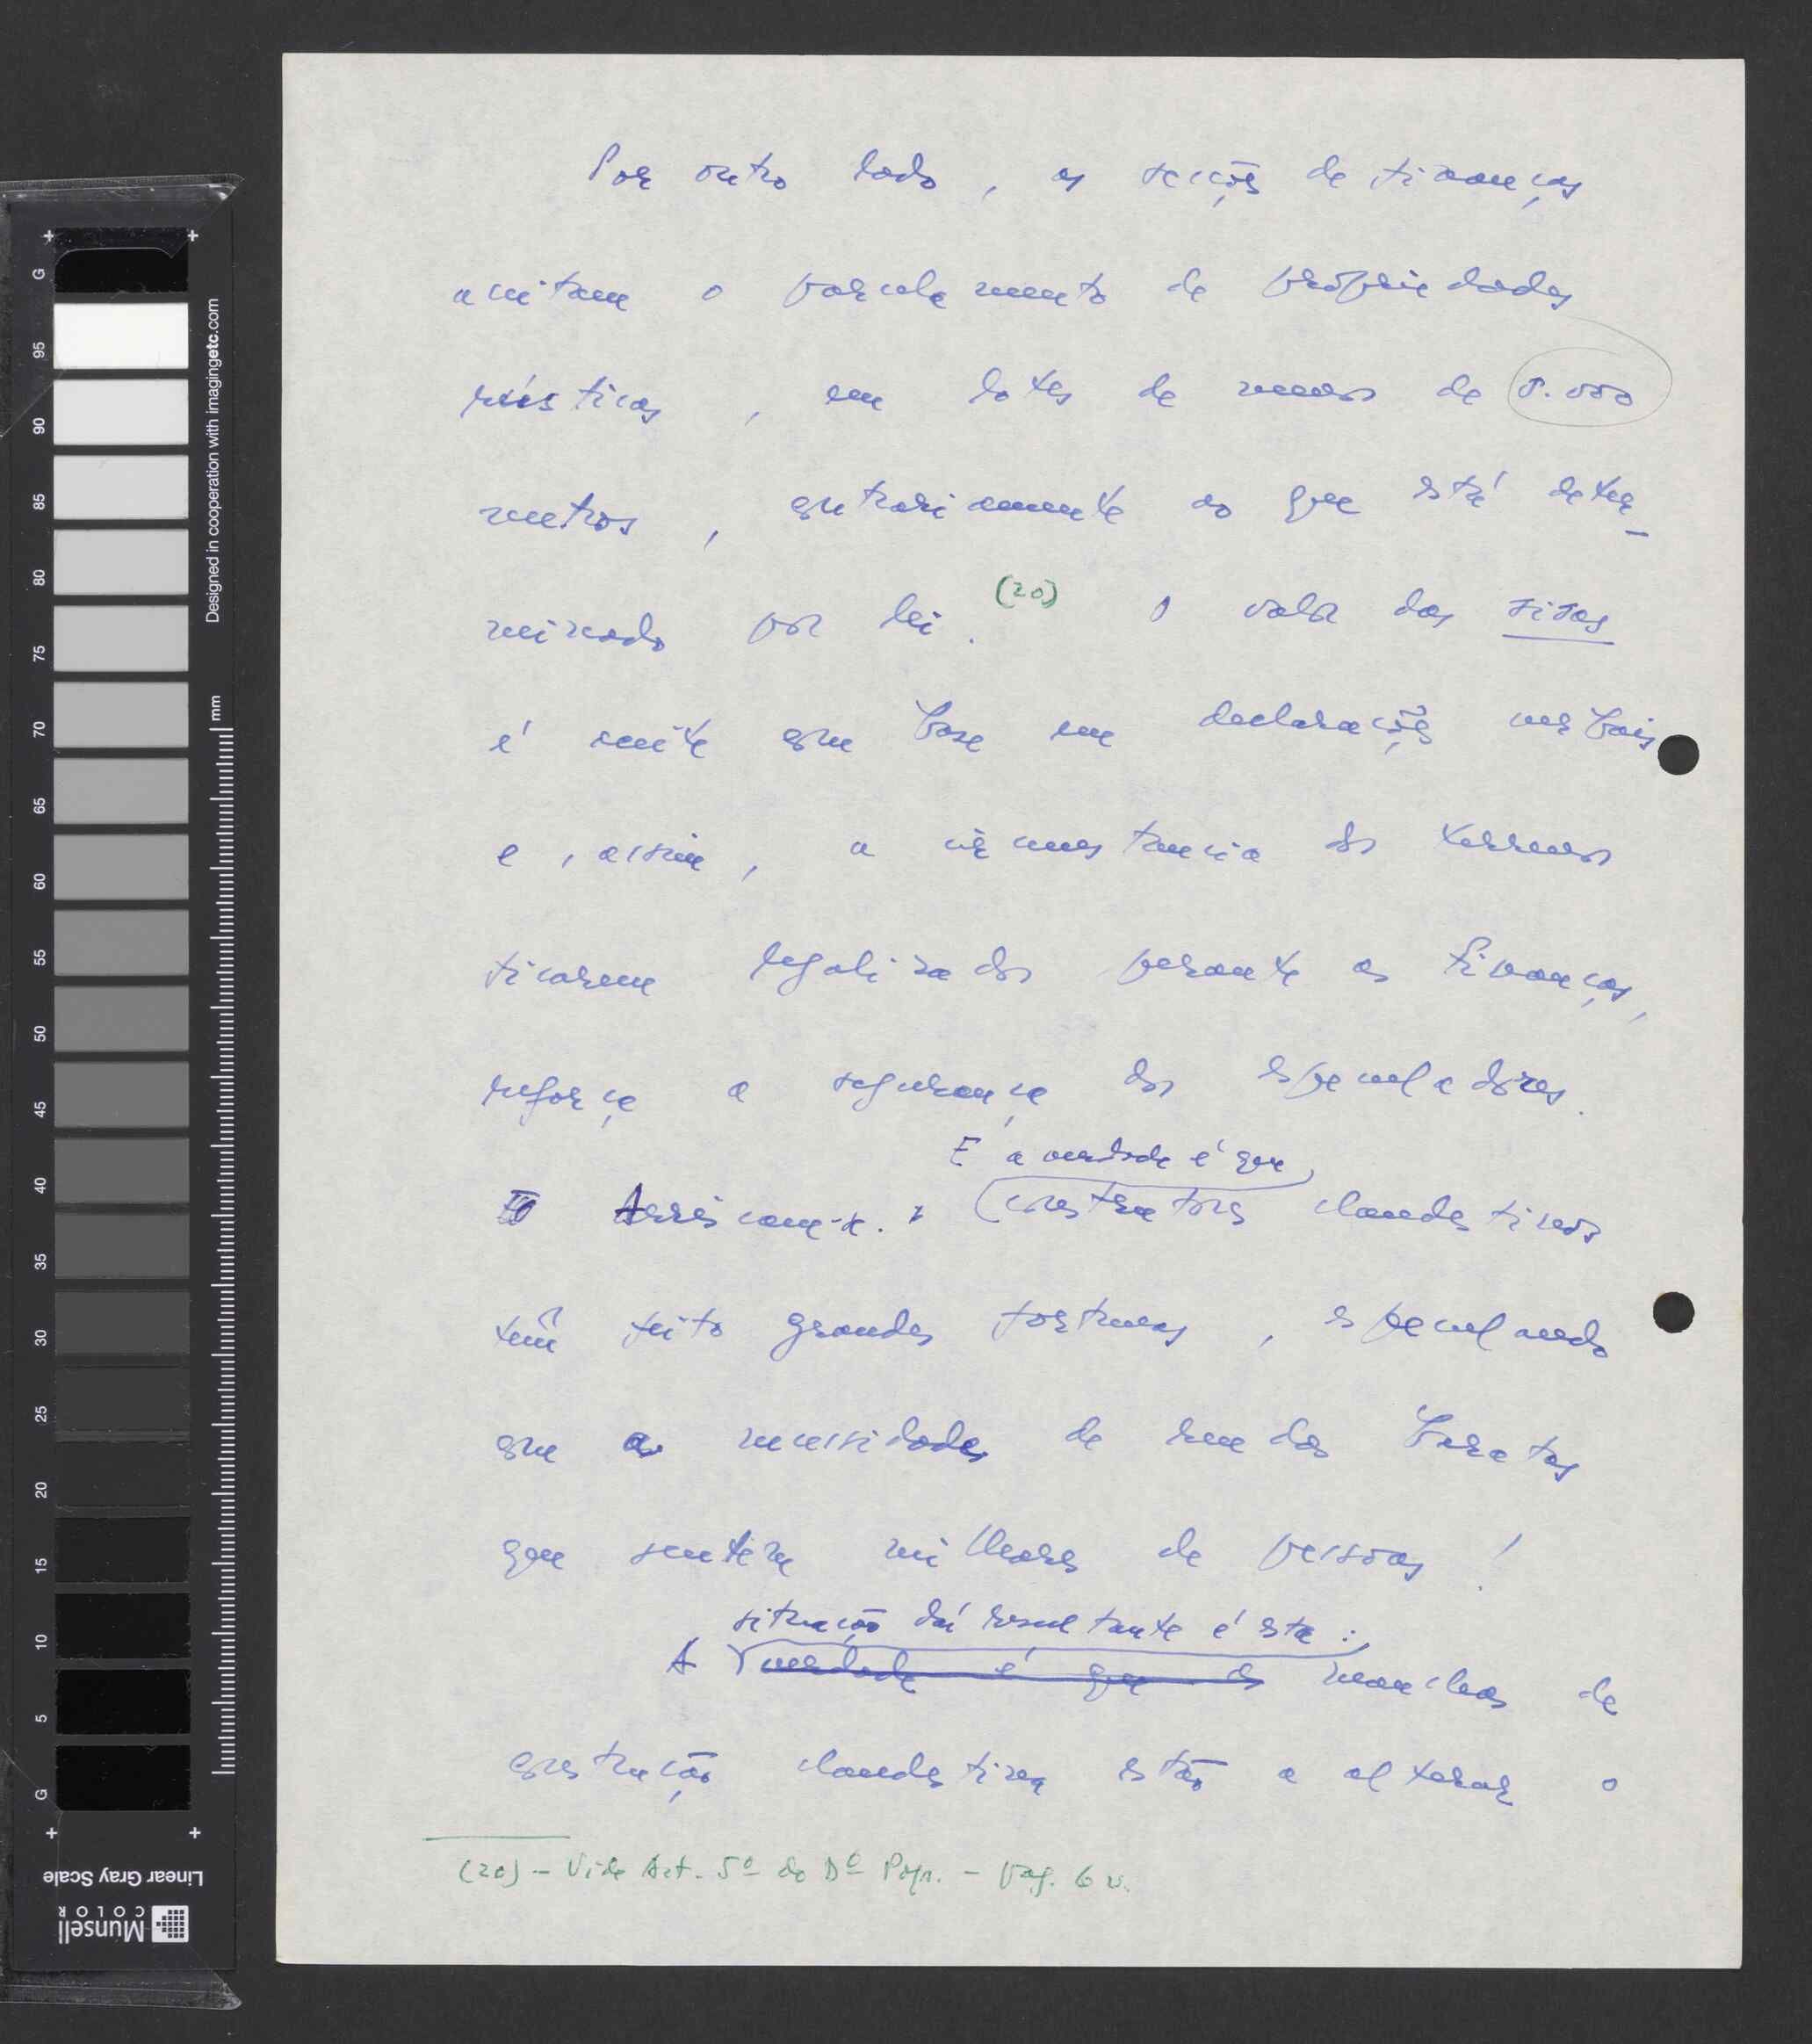 Por outro lado, as secções de finanças
aceitam o parcelamento de propriedades
rústicas, em lotes de menos de 5.000
metros, contrariamente ao que está deter-
minado por lei. (20) O valor das sisas
é aceite com base em declarações verbais
e, assim, a circunstancia dos terrenos
ficarem legalizados perante as finanças,
reforça a segurança dos especuladores.
E a verdade é que
Arriscam-se. construtores clandestinos
têm feito grandes fortunas, especulando
com as necessidades de rendas baratas
que sentem milhares de pessoas!
situação daí resultante é esta:
A verdade é que as manchas de
construção clandestina estão a alterar o
(20) - Vide Art. 5º do Dº Pop. - pag. 6 v.
G
95
90
85
80
75
70
65
60
55
50
45
40
35
30
25
20
15
10
5
G
mm
Designed in cooperation with imagingetc.com
Linear Gray Scale
Munsell
COLOR